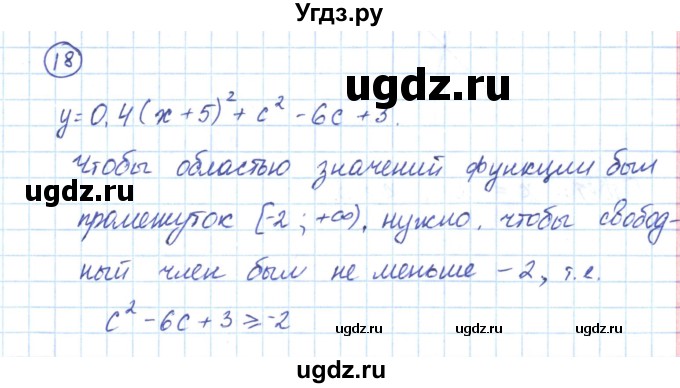 Угдз.ру
18
ugdz.ru
y=0,4(x+5)²+c²-6c+3.
Чтобы областью значений функции был
ugdz.ru
промежуток [-2; +∞), нужно, чтобы свобод-
ный член был не меньше -2, т.е.
c²-6c+3≥-2
ugdz.ru ugdz.ru ugdz.ru
ugdz.ru